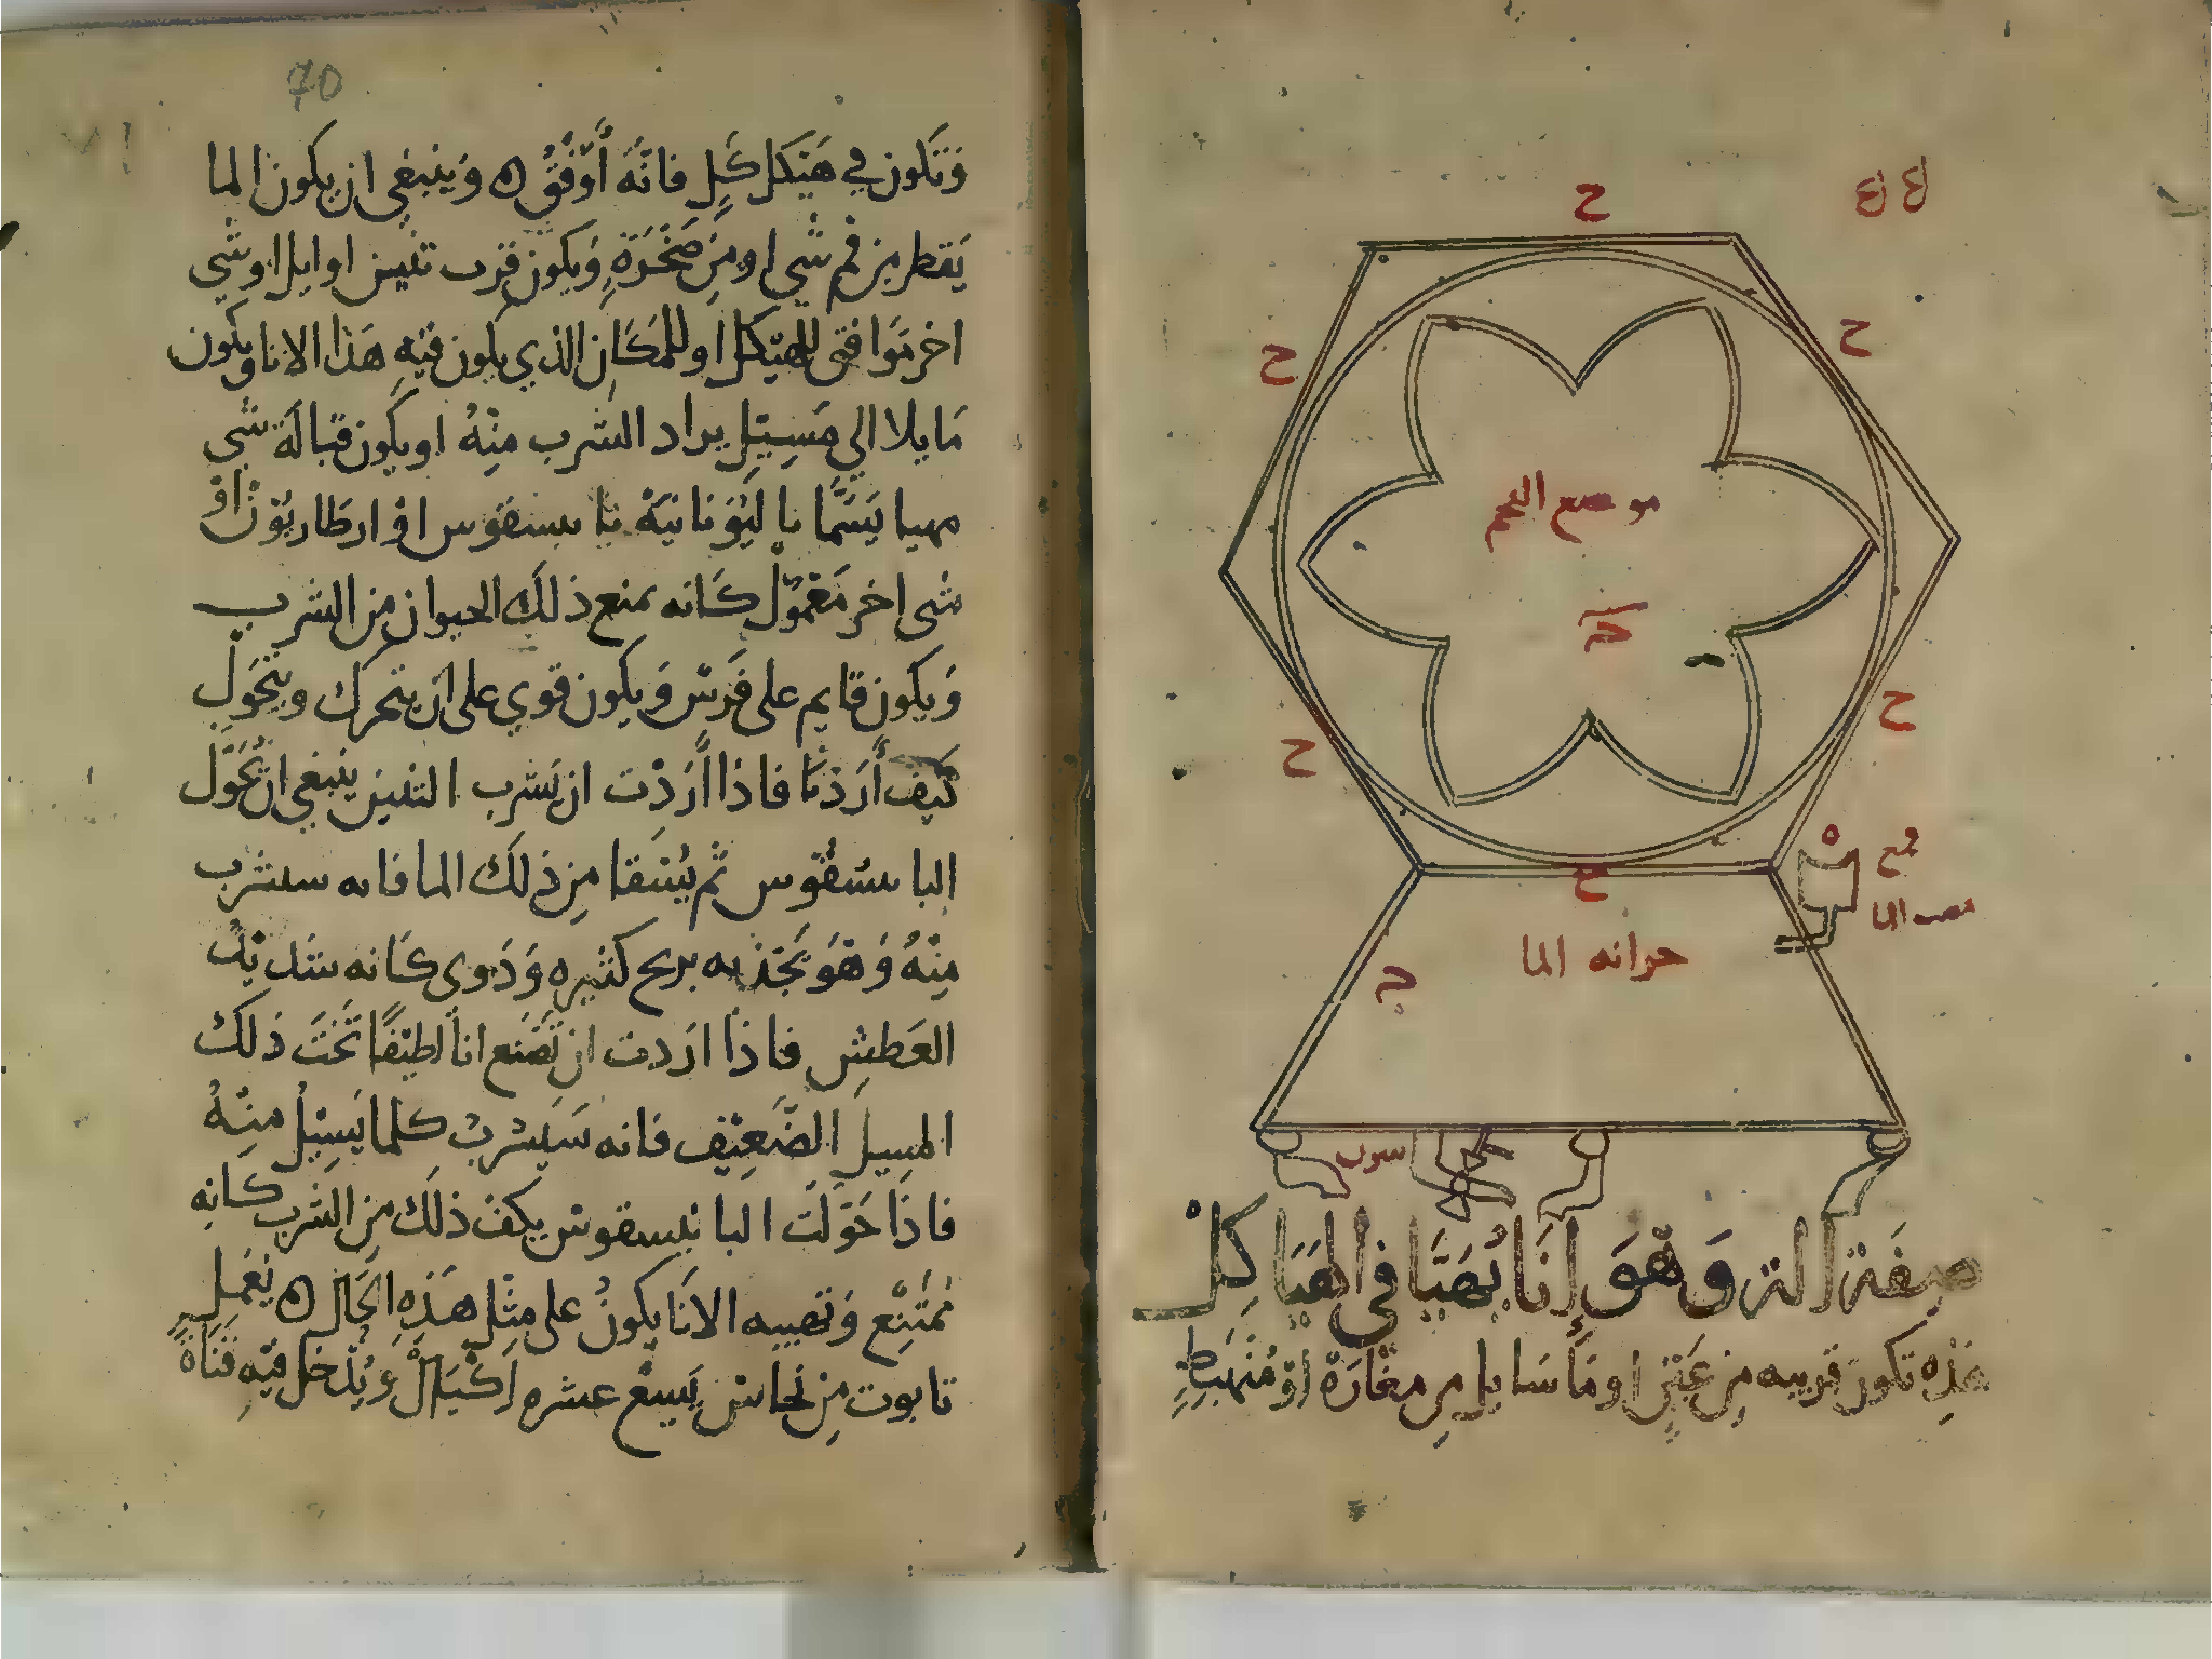 ح
ح
ح
موضع الفحم
ح
ح
ح
ح
مصب الما
خزانه الما
صِفَة الة وَهْوَ إِنَا يُهَيَّا في الهَيَاكِلْ
هَذِه تكون قريبه مِن عَيْنٍ او مَا سَايل مِن مغَارَة اوْ مُنْهَبِطٍ
70
وَتكون في هَيْكل كَلِ فانّهُ أَوْفَقُ ه وَينبَغي ان يكون الما
يَقطر من فم شي او مِن صَخْرَةٍ وَيكون قرب تنين او ايل او شي
اخر مَوافق للهيْكل او للمَكَان الذي يكون فيْهِ هَذا الانا ويكون
مَايلا الي مَسِيْلٍ يراد الشرب منِهُ او يكون قبَالَة شي
مهيا يَسَمَّا باليُوْنانيَهْ با سقوس اوْ ارطاريُوْن اوْ
شى اخر مَعْمُوْل كَانه يمنع ذلك الحيوان من الشرب
وَيكون قايم على فَرَس وَيكون قوي على ان يتحرك ويتحَوَل
كيَف أَرَدْنَا فاذا أَرَدْت ان يَشرب التنين ينبغي ان تُحَوَّل
البا سقوس ثم يُستقا مِن ذلك الما فانه سيشرب
مِنْهُ وَهْوَ يَجْذبه بريح كثيره وَدَوى كَانه شديْد
العَطش فاذا اردت ان تَصْنَع اناً لطيْفًا تَحْتَ ذلك
المسيل الضَعِيْف فانه سَيَشربُ كلما يَسِيْلُ منِهُ
فاذَا حَوَّلَتَ البا نيسقوس يكف ذلك مِن الشرب كانه
مُمتَنِع وَتهييه الانَا يكونُ على مثِل هَذِه الحَال ه يَعْمَل
تابوت مِن نحاس يَسِعْ عشره اَكْيَال وَيُدْخل فيْه قَنَاة